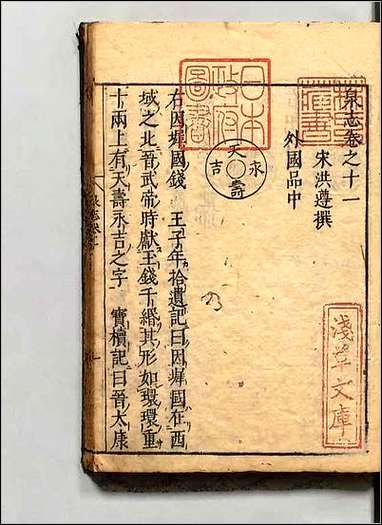 泉志卷之十一
宋洪遵撰
外國品中
天壽永吉
右因墀國錢　王子年拾遺記曰因墀國在西
域之北晉武帝時獻王錢千緡其形如環環重
十兩上有天壽永吉之字　寶櫝記曰晉太康
日本
政府
圖書
淺草文庫